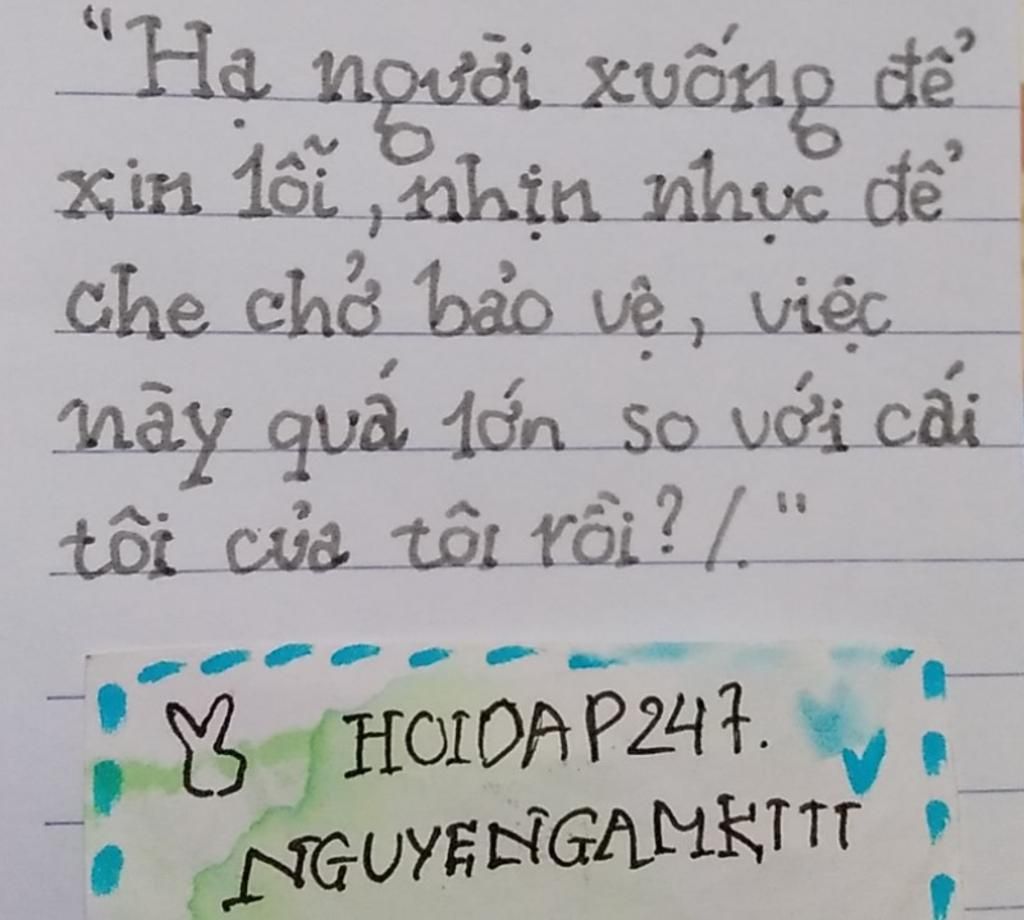 "Hạ người xuống để
xin lỗi, nhịn nhục để
che chở bảo vệ, việc
này quá lớn so với cái
tôi của tôi rồi?/."
HOIDAP247.
NGUYENGAMKTTT